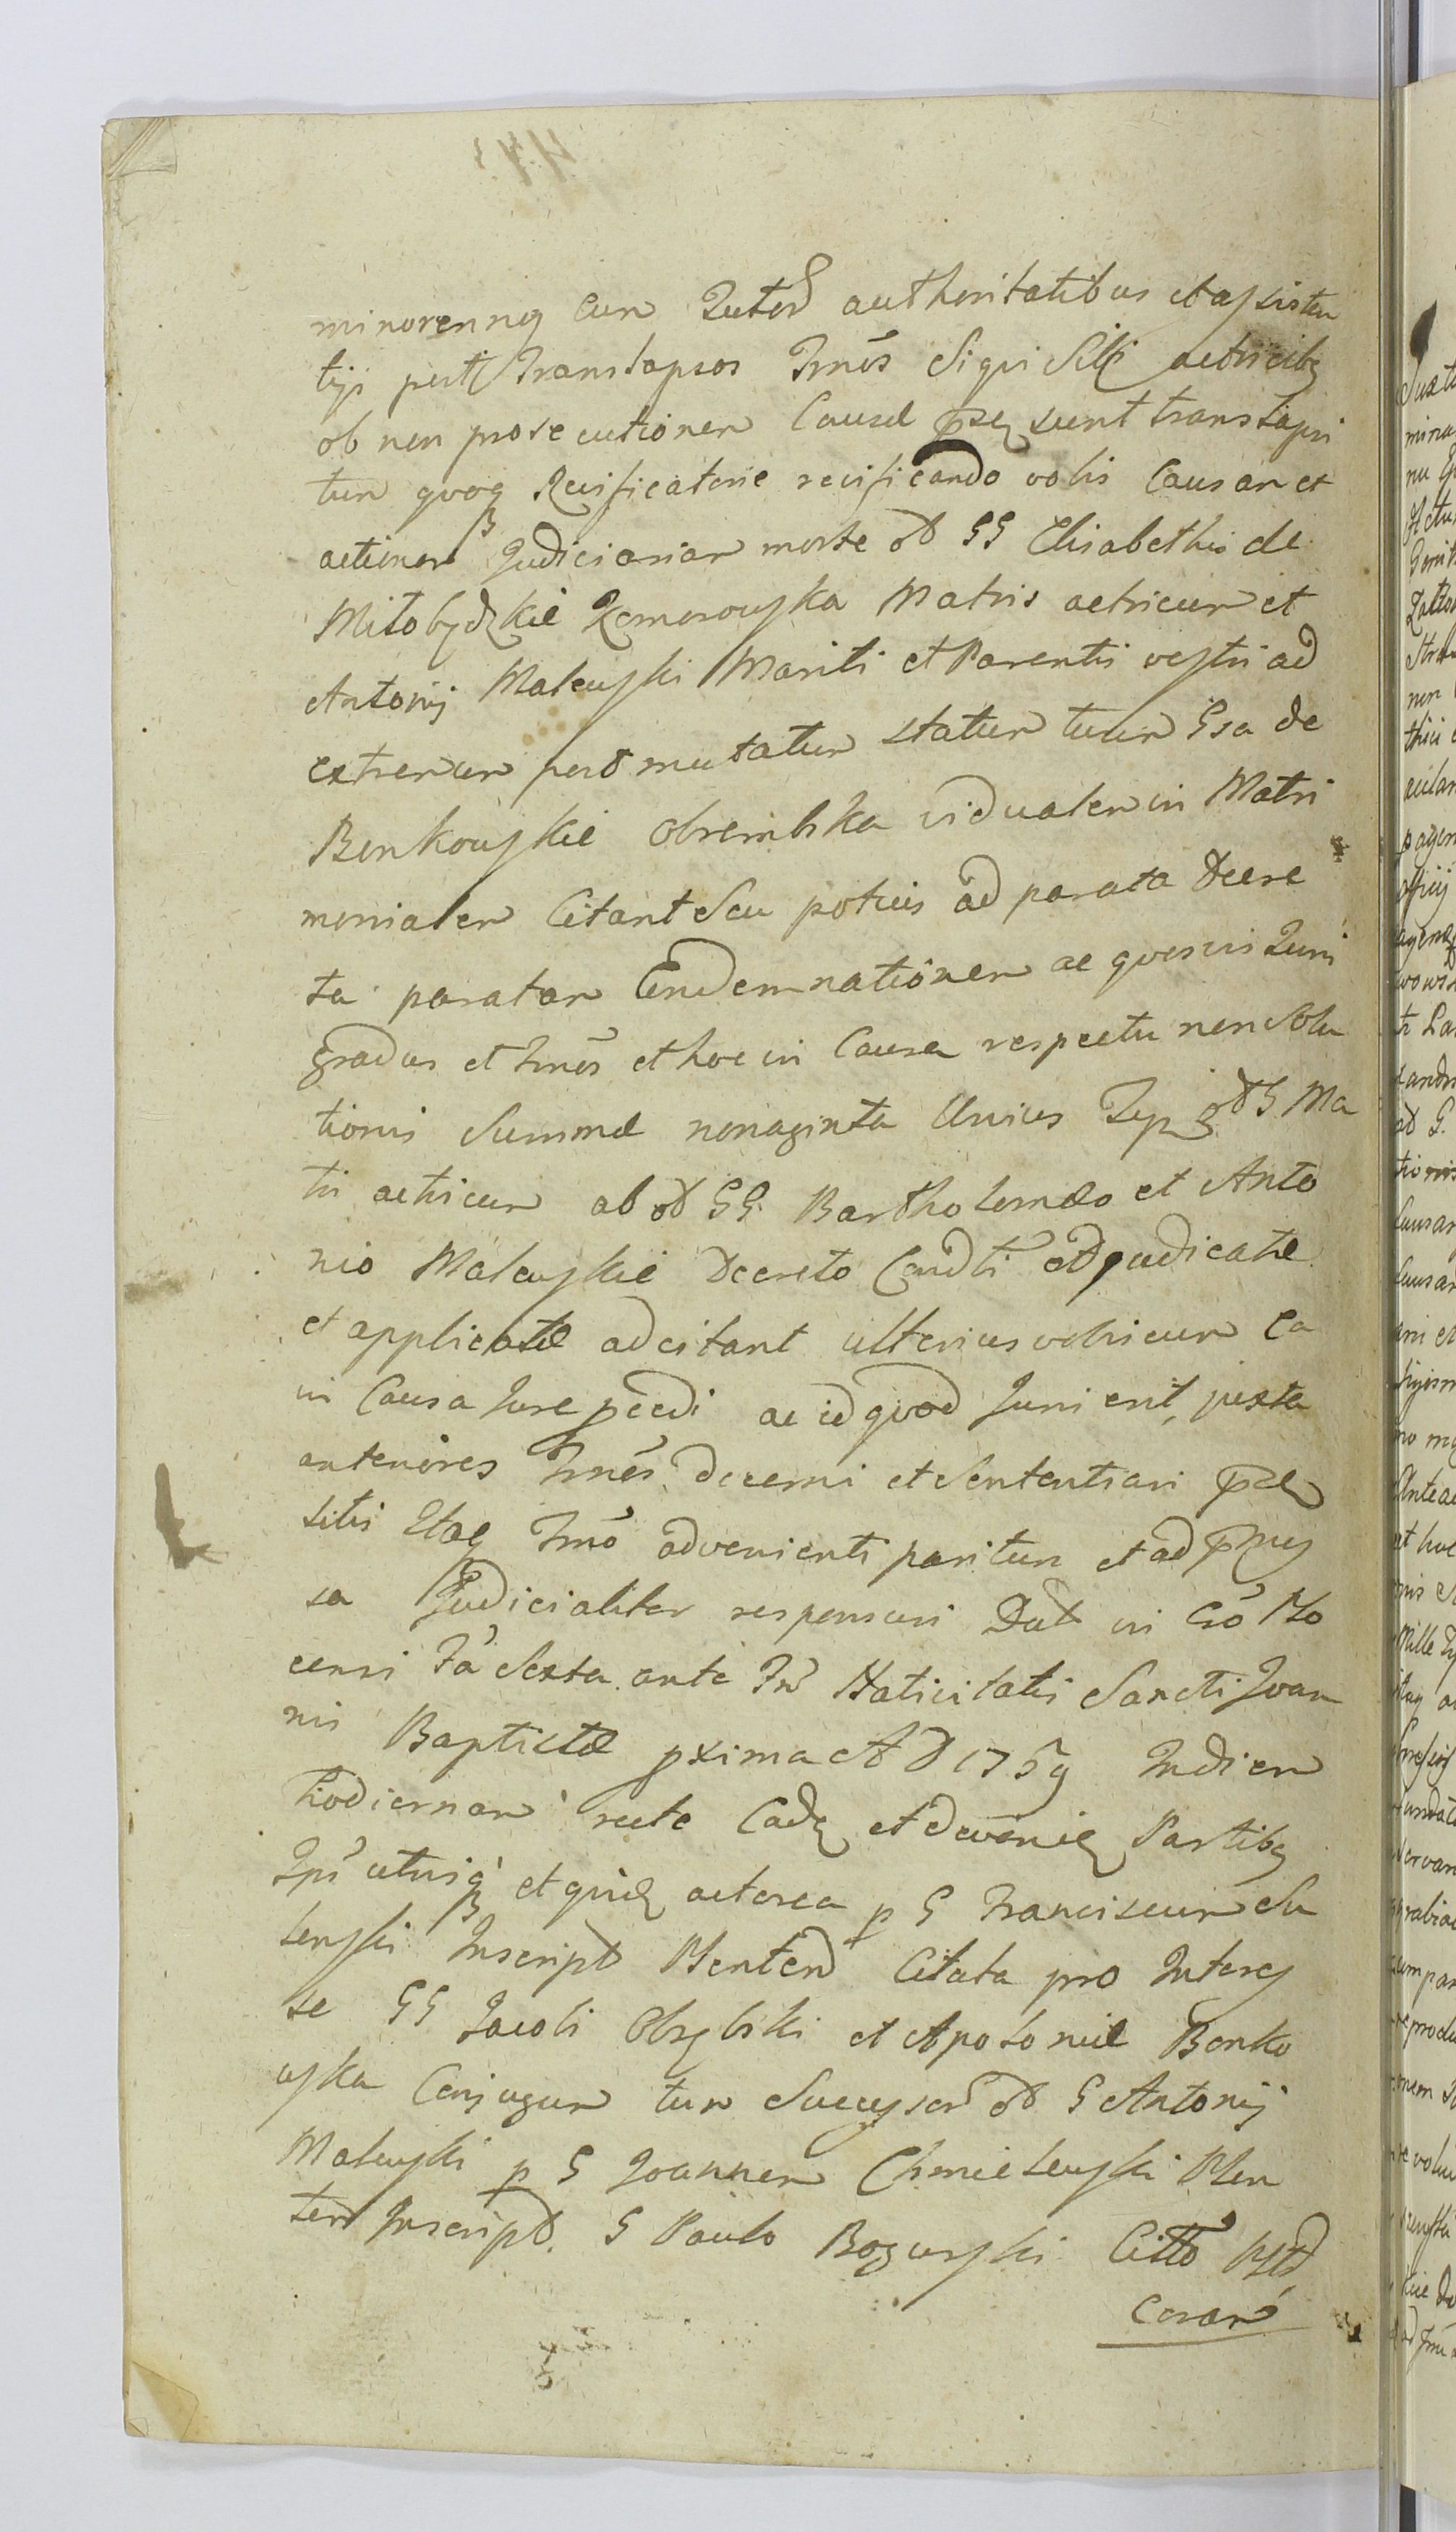 minorennq cum Tutor authoritatibus et assisten
tijs post Translapsos Tmos Siqui Sibi actricibq
ob non prosecutionem Causæ psq sunt translapsi
tum quoq Reassumptorie vobis Causam et
actionem Judiciariam morte od GG Elisabethis de
Miłobędzkie Komorowska Matris actricum et
Antonij Malewski Mariti et Parentis vestri ad
extremum post mutatum statum tuum Gsa de
Benkowskie Obrembska vidualem in Matri
monialem Citant Seu potius ad parata Decre
ta paratam Condemnationem ac quosvis Juris
gradus et Tmos et hoc in Causa respectu non Solu
tionis Summæ nonaginta Unius Typ od G Ma
tri actricum ab od GG Bartholomæo et Anto
nio Malewskie Decreto Condti adjudicatæ
et applicatæ adcitant ulterius vobiscum ea
in Causa Jure pcedi ac id quod Juris erit juxta
anteriores Tmos decerni et Sententiari
sitis Itaq Tmo advenienti parituri et ad pmis
sa Judicialiter responsuri Dat in Cro No
censi Fa Sexta ante Fm Nativitatis Sancti Joan
nis Baptistæ pxima A D 1759 In diem
hodiernam recte Cadq et deveniq Partibq
Ipis utrisq et quidq actorea p G Franciscum Su
lewski Inscript Plenten Citata pro Interes
se GG Jacobi Obrębski et Apoloniæ Benko
wska Conjugum tum Successor od G Antonij
Malewski p G Joannem Chmielewski Plen
ten Inscript. G Paulo Bogurski Citto
Coram